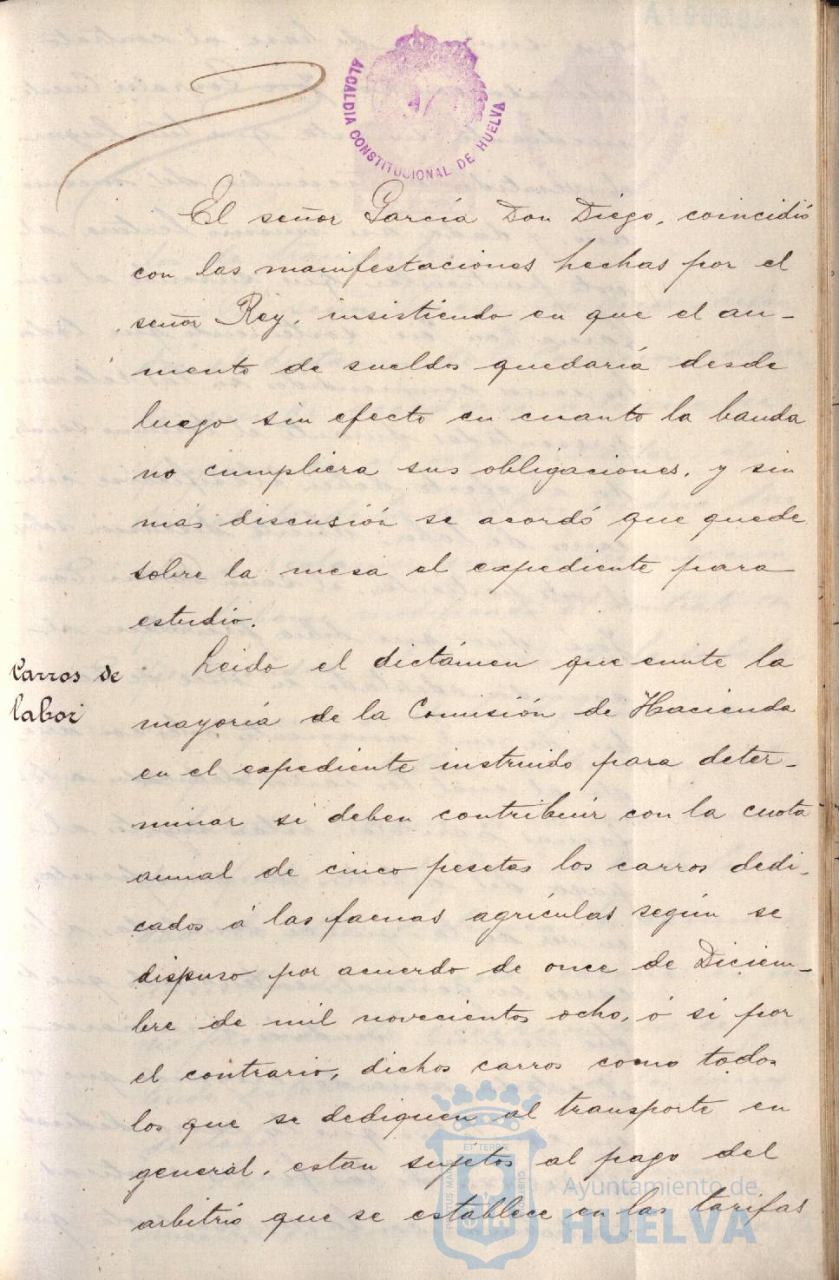 ALCALDIA CONSTITUCIONAL DE HUELVA
El señor García Don Diego, coincidió
con las manifestaciones hechas por el
señor Rey, insistiendo en que el au-
mento de sueldos quedaría desde
luego sin efecto en cuanto la banda
no cumpliera sus obligaciones, y sin
más discusión se acordó que quede
sobre la mesa el expediente para
estudio.
Carros de
labor
Leido el dictámen que emite la
mayoría de la Comisión de Hacienda
en el expediente instruido para deter-
minar si deben contribuir con la cuota
anual de cinco pesetas los carros dedi-
cados á las faenas agrículas según se
dispuso por acuerdo de once de Diciem-
bre de mil novecientos ocho, ó si por
el contrario, dichos carros como todos
los que se dediquen al transporte en
general, estan sujetos al pago del
arbitrio que se establece en las tarifas
Ayuntamiento de
HUELVA